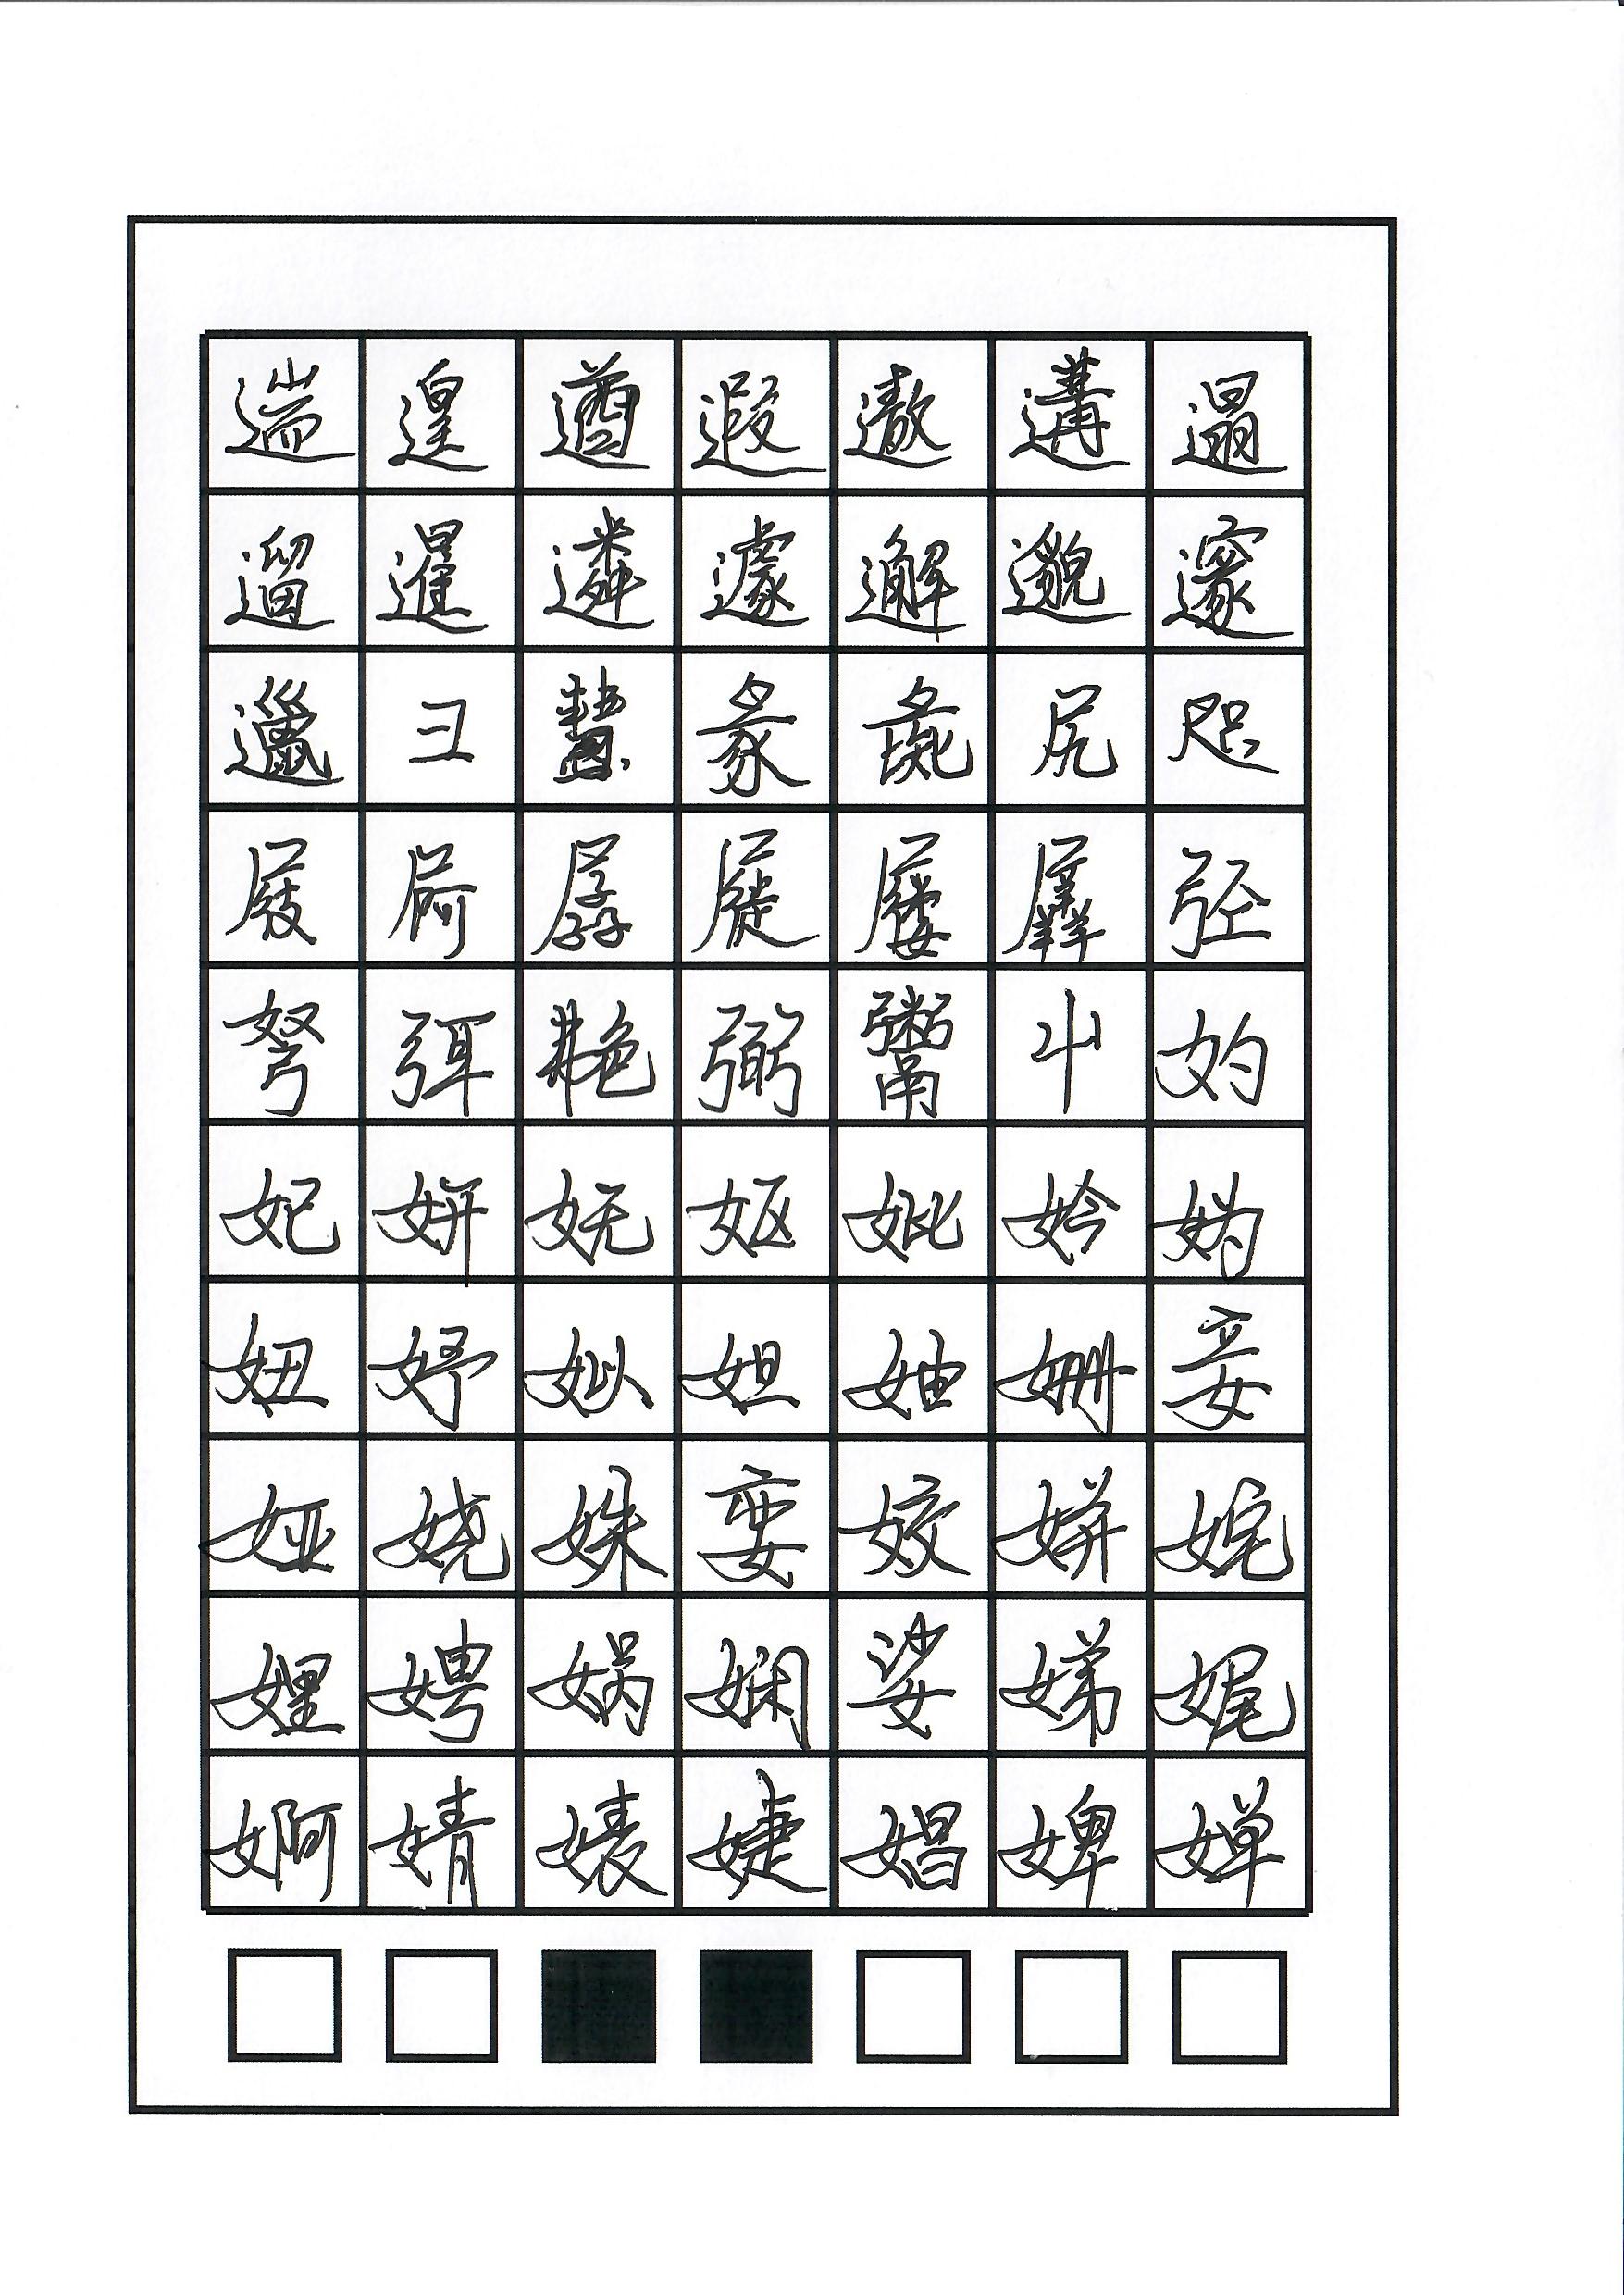 遄遑遒遐遨遘遢
遛暹遴遽邂邈邃
邋彐慧彖彘尻咫
屐屙孱屣屦羼弪
弩弭艴弼鬻屮妁
妃妍妩妪妣妗妫
妞妤姒妲妯姗妾
娅娆姝娈姣姘姹
娌娉娲娴娑娣娓
婀婧婊婕娼婢婵